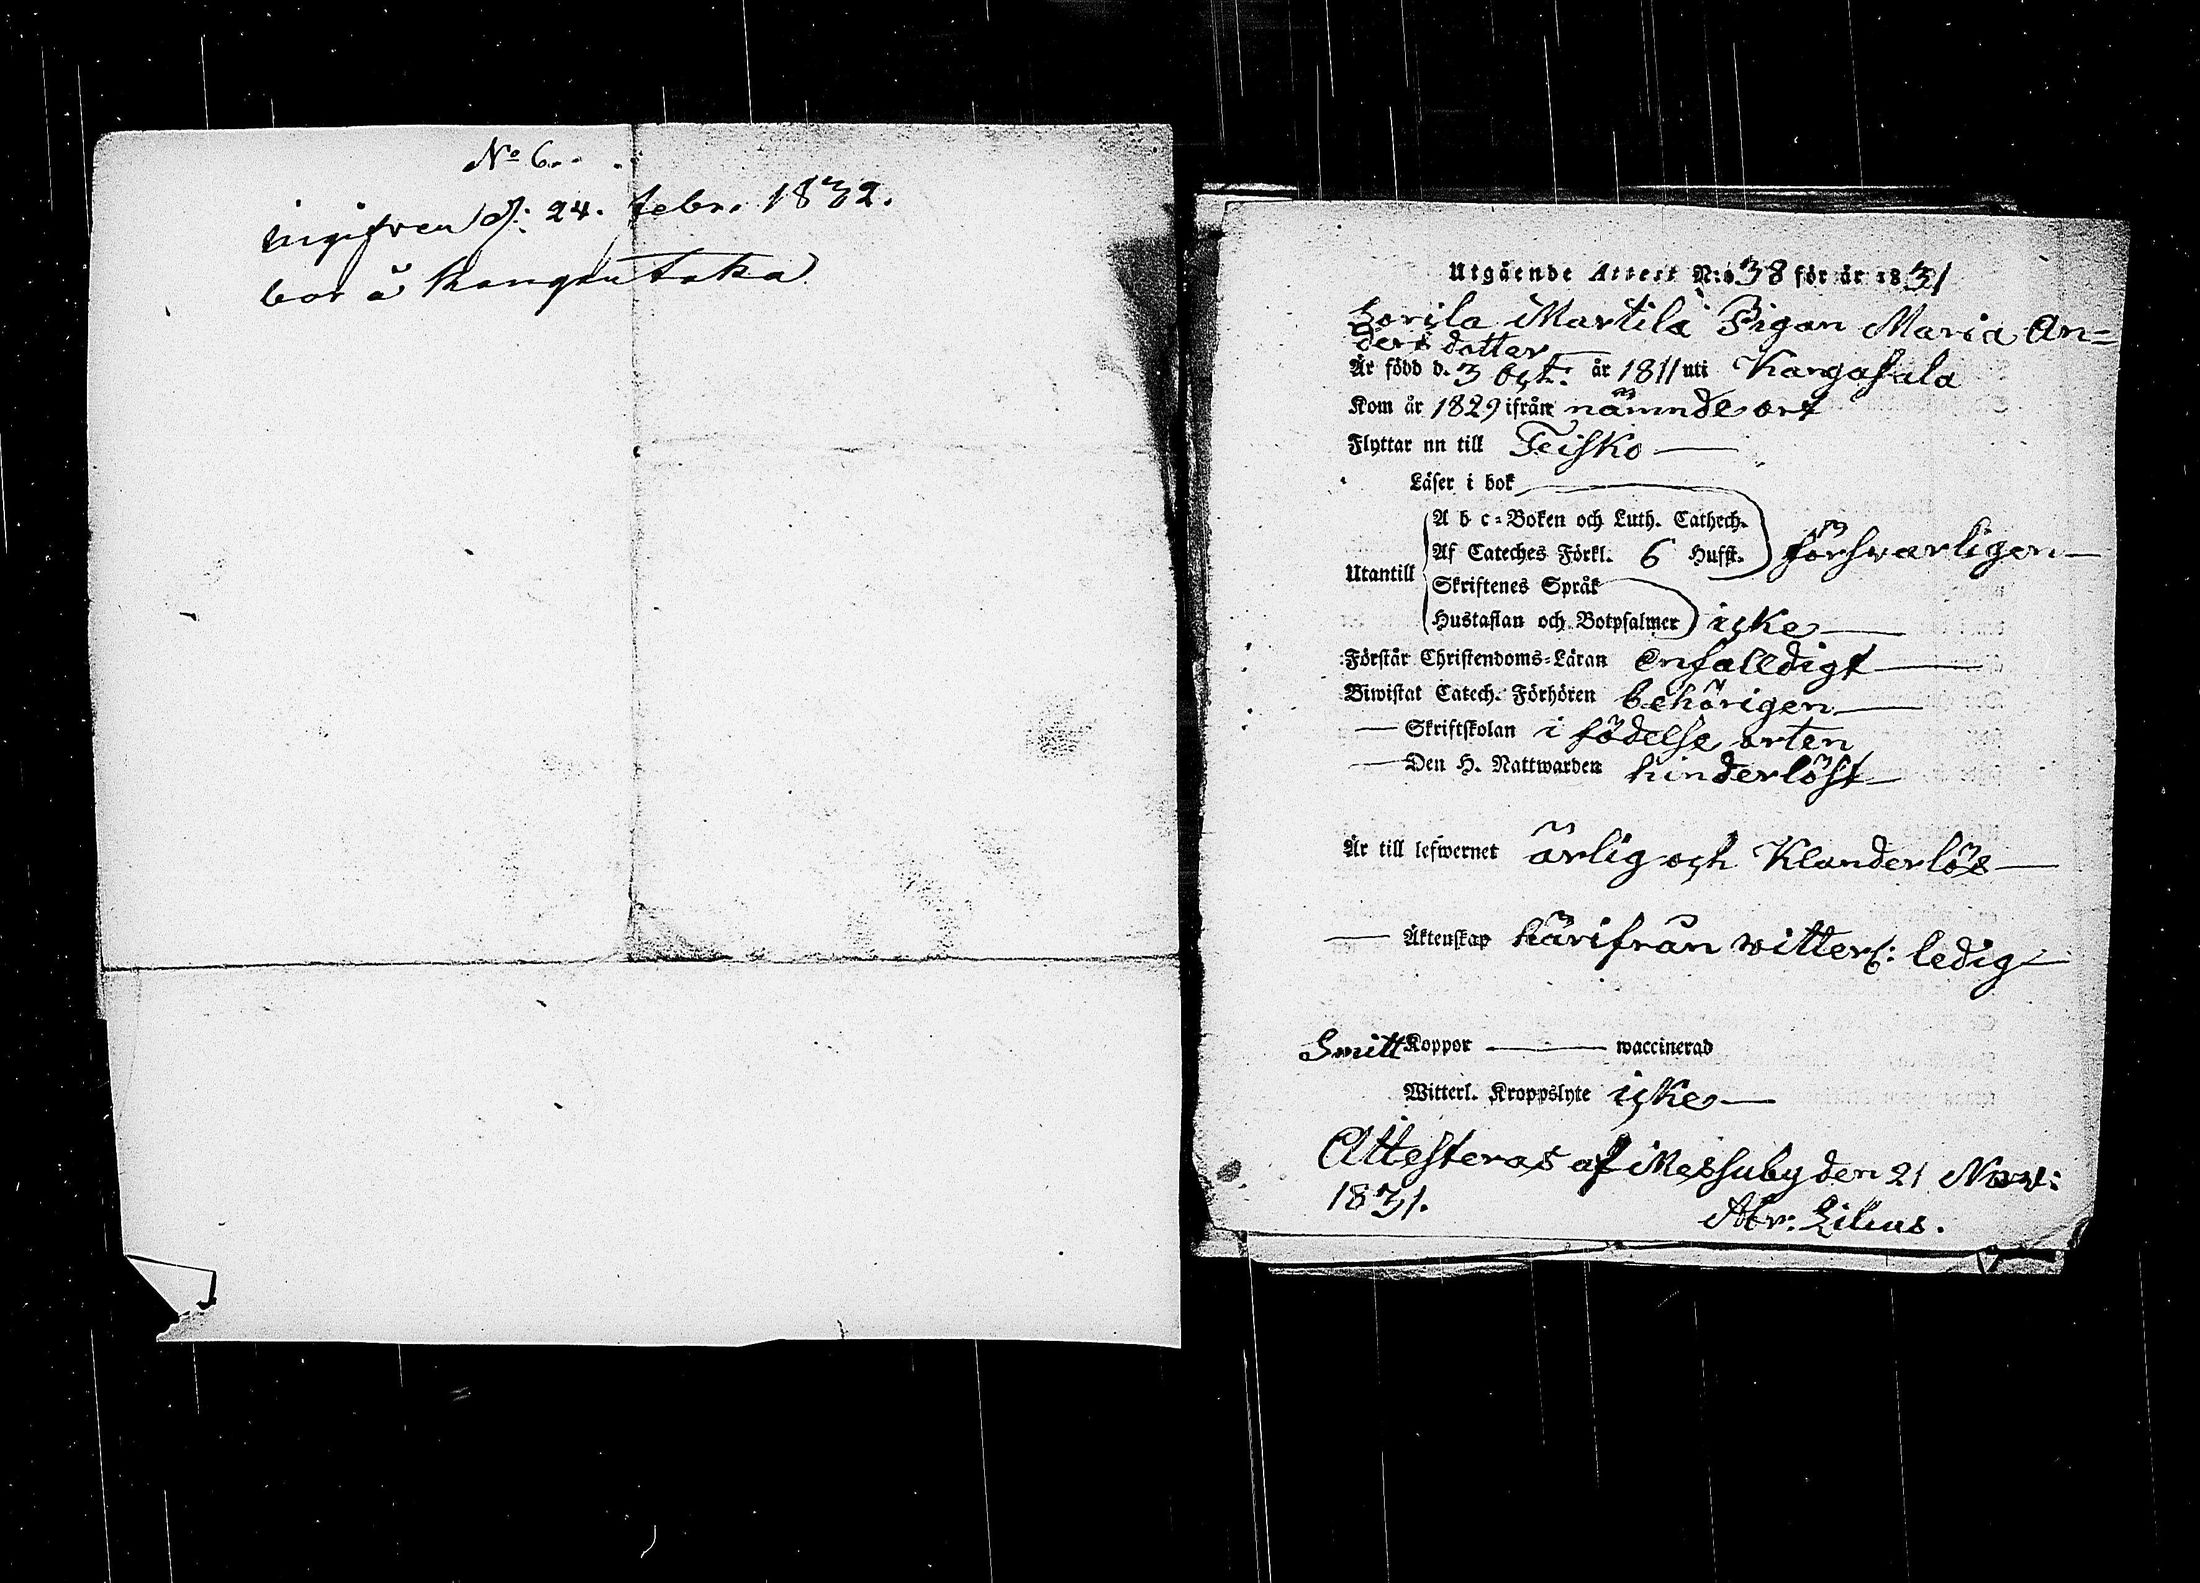 No 6.
ingifven d: 24. Febr. 1832.
bor å Kangantaka
Utgående Attest N:o 38 för år 1831
Sorila Martila Pigan Maria An=
ders dotter
Är född d. 3 Oct. år 1811 uti Kangasala
Kom år 1829 ifrån nämnde ort
Flyttar nu till Teisko
Läser i bok
A b c=Boken och Luth. Cathech.
Af Cateches Förkl. 6 Hufst. försvarligen
Utantill
Skriftenes Språk
Hustaflan och Botpsalmer icke
Förstår Christendoms=Läran enfalldigt
Biwistat Catech. Förhören behörigen
Skriftskolan i födelse orten
Den H. Nattwarden hinderlöst
Är till lefwernet ärlig och Klanderlös
Äktenskap härifrån witterl: ledig
Smitt Koppor waccinerad
Witterl. Kroppslyte icke
Attesteras af Messuby den 21 Nov:
1831.
Abr: Lilius.